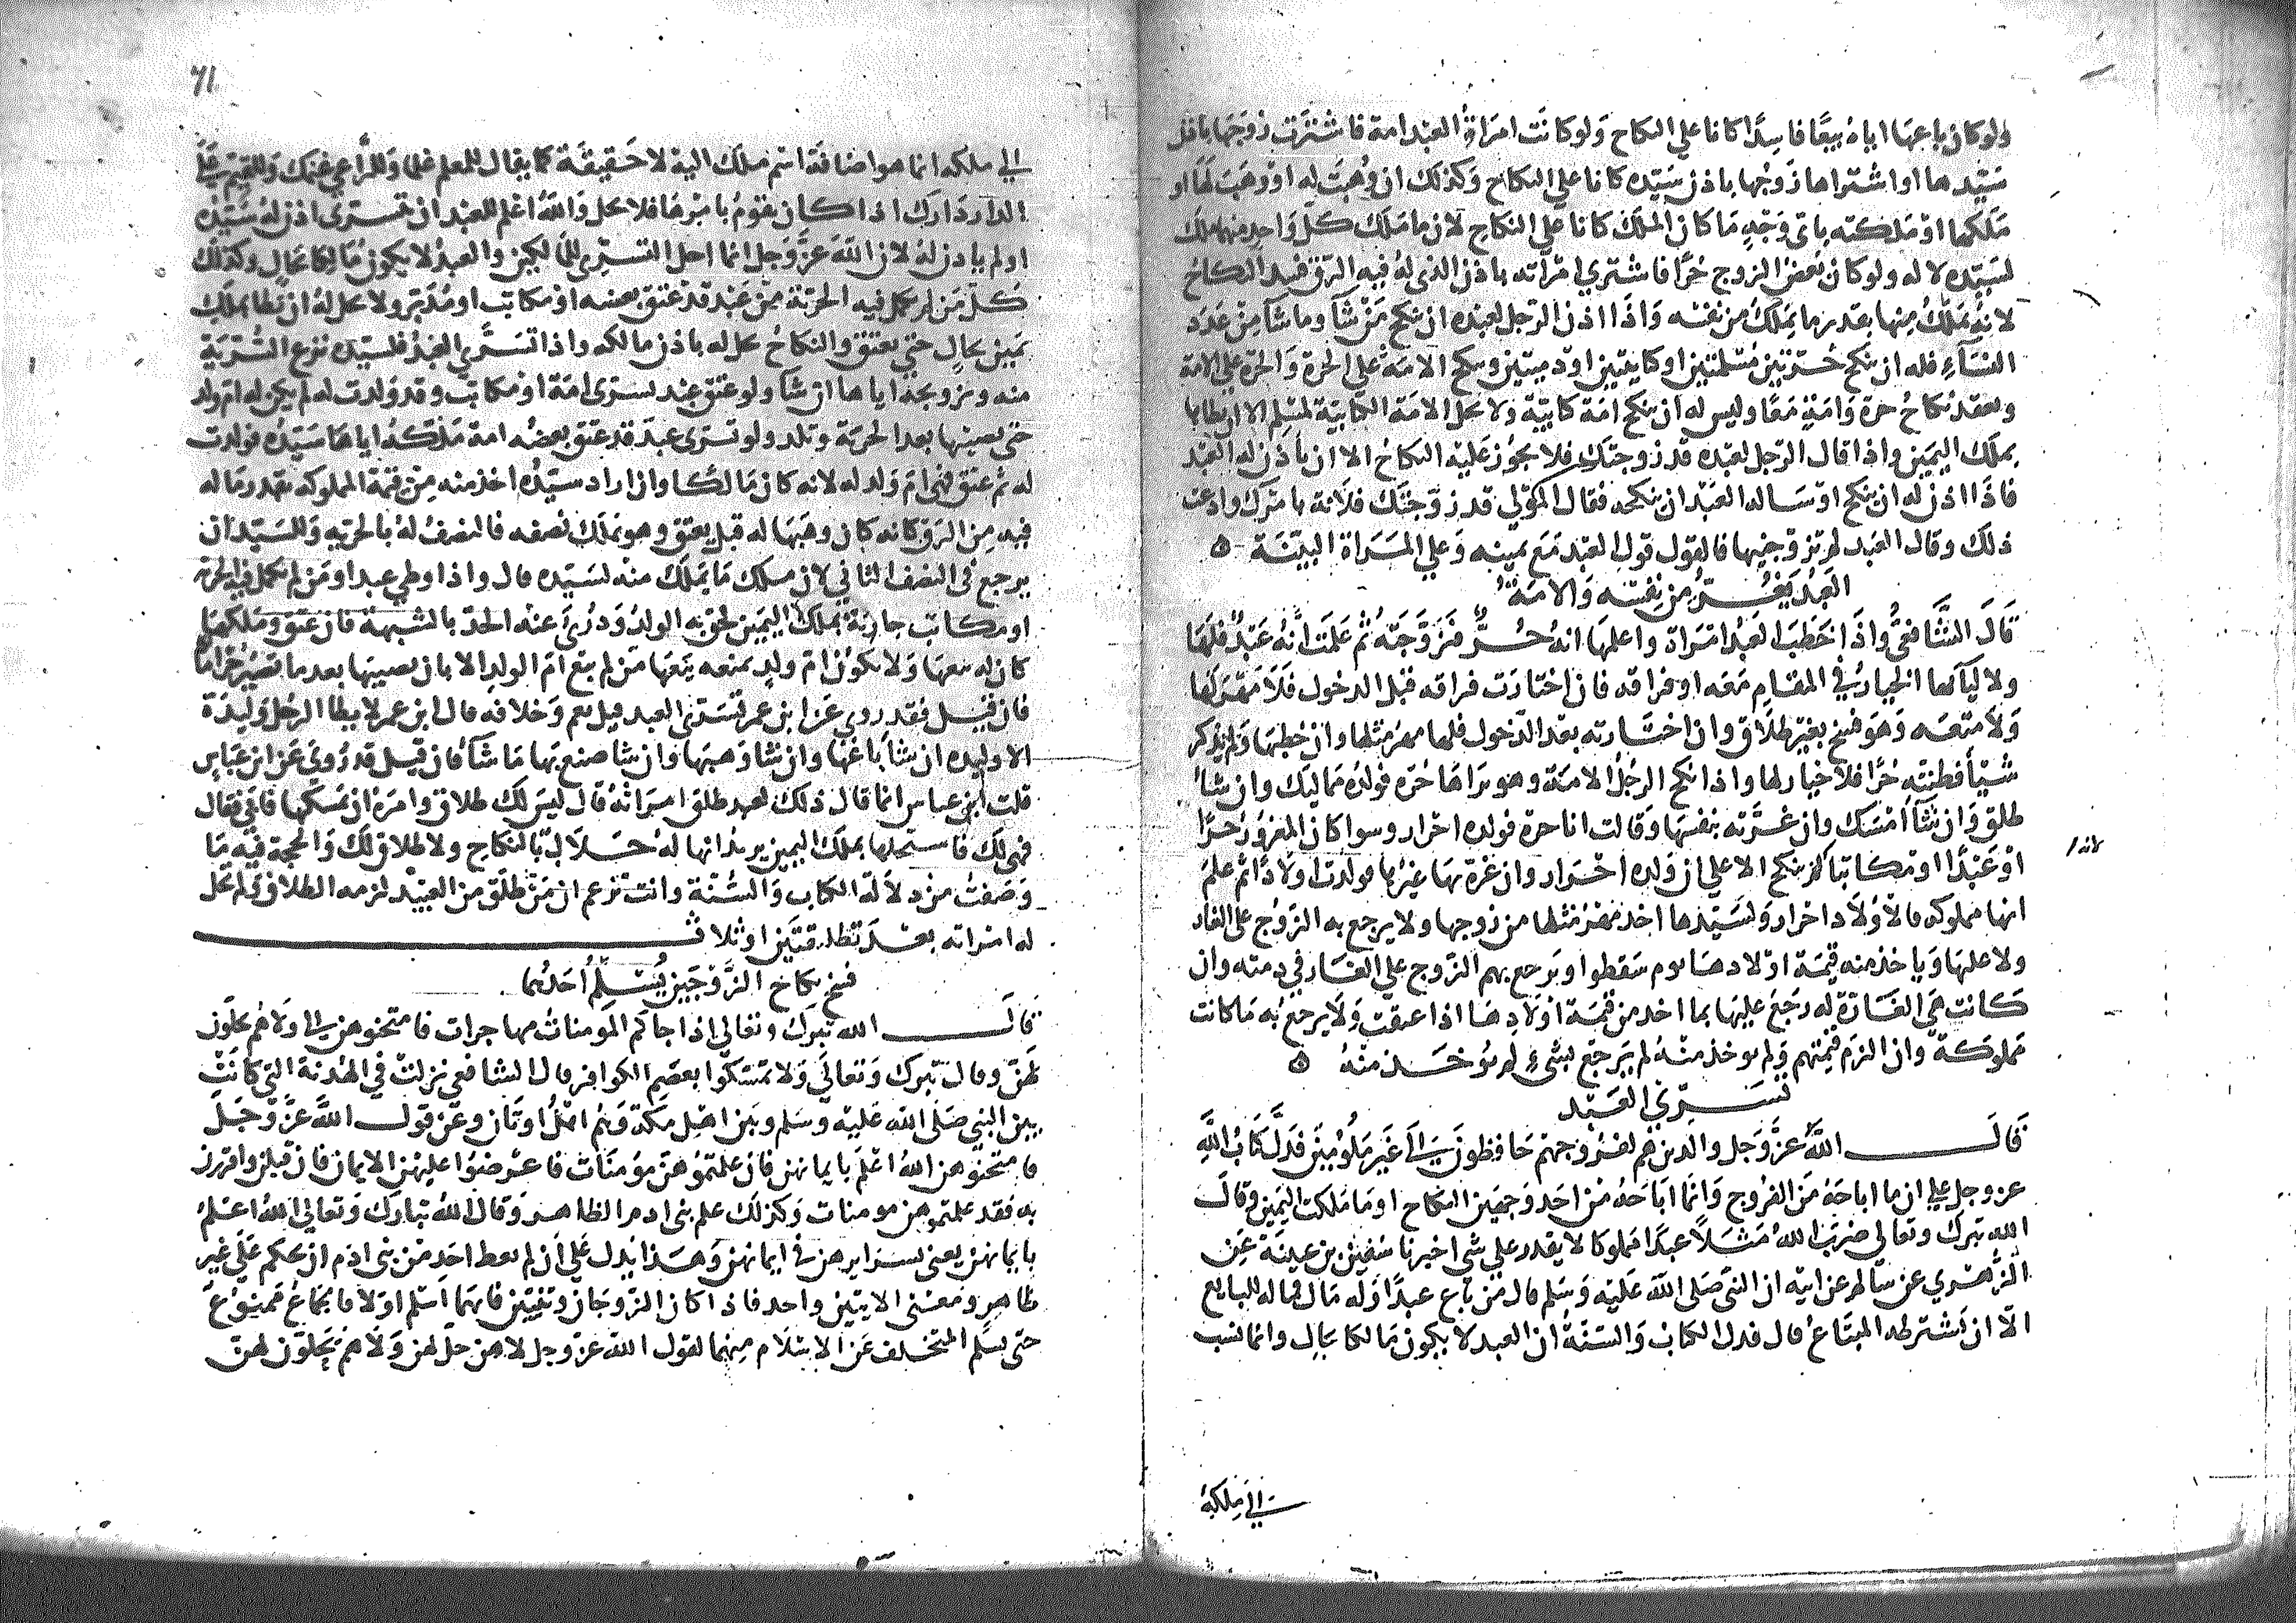 ولو كان باعها اياه بيعا فاسدا كانا على النكاح ولو كانت امراة العبد امة فاشترت زوجها باذن
سيدها او اشتراها زوجها باذن سيده كانا على النكاح وكذلك ان وهبت له او وهب لها او
ملكها او ملكته باى وجه ما كان الملك كانا على النكاح لان ما ملك كل واحد منهما ملك
لسيده لا له ولو كان بعض الزوج حرا فاشترى امراته باذن الذى له فيه الرق فسد النكاح
لانه يملك منها بقدر ما يملك من نفسه واذا اذن الرجل لعبده ان ينكح من شآ وما شآ من عدد
النسآء فله ان ينكح حرتين مسلمتين او كتابيتين او ذميتين وينكح الامة على الحرة والحرة على الامة
ويعقد نكاح حرة وامة معا وليس له ان ينكح امة كتابية ولا تحل الامة الكتابية لمسلم الا ان يطاها
بملك اليمين واذا قال الرجل لعبده قد زوجتك فلا يجوز عليه النكاح الا ان ياذن له العبد
فاذا اذن له ان ينكح او ساله العبد ان ينكحه فقال المولى قد زوجتك فلانة بامرك وادعت
ذلك وقال العبد لم تزوجنيها فالقول قول العبد مع يمينه وعلى المراة البينة ه
العبد يغر من نفسه والامة
قال الشافعى واذا خطب العبد امراة واعلمها انه حر فتزوجته ثم علمت انه عبد فلها
ولاوليآئها الخيار فى المقام معه او فراقه فان اختارت فراقه قبل الدخول فلا مهر لها
ولا متعه وهو فسخ بغير طلاق وان اختارته بعد الدخول فلها مهر مثلها وان خطبها ولم يذكر
شيأ فظنته حرا فلا خيار لها واذا نكح الرجل الامة وهو يراها حرة فولده مماليك وان شآ
طلق وان شآ امسك وان غرته بنفسها وقالت انا حرة فولده احرار وسوا كان المغرور حرا
او عبدا او مكاتبا لم ينكح الا على ان ولده احرار وان غره بها غيرها فولدت اولادا ثم علم
لانه
انها مملوكه فالاولاد احرار ولسيدها اخذ مهر مثلها من زوجها ولا يرجع به الزوج على الغار
ولا عليها وياخذ منه قيمة اولادها يوم سقطوا ويرجع بهم الزوج على الغار فى ذمته وان
كانت هى الغارة له رجع عليها بما اخذ من قيمة اولادها اذا عتقت ولا يرجع به ما كانت
مملوكة وان الزم قيمتهم ولم يوخذ منه لم يرجع بشىء لم يوخذ منه ه
تسرى العبد
قال الله عز وجل والذين هم لفروجهم حافظون الى غير ملومين فدل كتاب الله
عز وجل على ان ما اباحه من الفروج وانما اباحه من احد وجهين النكاح او ما ملكت اليمين وقال
الله تبرك وتعالى ضرب الله مثلا عبدا مملوكا لا يقدر على شى اخبرنا سفين بن عيينة عن
الزهرى عن سالم عن ابيه ان النبى صلى الله عليه وسلم قال من باع عبدا وله مال فماله للبايع
الا ان يشترطه المبتاع قال فدل الكتاب والسنة ان العبد لا يكون مالكا بحال وانما نسب
الى ملكه
٧١
الى ملكه انما هو اضافة اسم ملك اليه لا حقيقة كما يقال للمعلم غلمانك وللراعى غنمك وللقيم على
الدار دارك اذا كان يقوم بامرها فلا يحل والله اعلم للعبد ان يتسرى اذن له سيده
او لم ياذن له لان الله عز وجل انما احل التسرى للمالكين والعبد لا يكون مالكا بحال وكذلك
كل من لم تكمل فيه الحرية من عبد قد عتق بعضه او مكاتب او مدبر ولا يحل له ان يطا بملك
يمين بحال حتى يعتق والنكاح يحل له باذن مالكه واذا تسرى العبد فلسيده نزع السرية
منه وتزويجه اياها ان شآ ولو عتق عبد تسرى امة او مكاتب وقد ولدت له لم يكن له ام ولد
حتى يصيبها بعد الحرية وتلد ولو تسرى عبد قد عتق بعضه امة ملكه اياها سيده فولدت
له ثم عتق فهى ام ولد له لانه كان مالكا وان اراد سيده اخذ منه من قيمة المملوكه بقدر ما له
فيه من الرق كانه كان وهبها له قبل يعتق وهو يملك نصفه فالنصف له بالحرية وللسيد ان
يرجع فى النصف الثانى لان ملك ما يملك منه لسيده قال واذا وطى عبد او من لم تكمل فيه الحرية
او مكاتب جارية بملك اليمين لحق به الولد ودرئ عنه الحد بالشبهة فان عتق وملكها
كان له بيعها ولا تكون ام ولد يمنعه بيعها من لم يبع ام الولد الا بان يصيبها بعد ما يصير حرا
فان قيل فقد روى عن ابن عمر تسرى العبد قيل نعم وخلافه قال ابن عمر لا يطا الرجل وليدة
الا وليده ان شآ باعها وان شا وهبها وان شا صنع بها ما شآ فان قيل قد روى عن ابن عباس
قلت ابن عباس انما قال ذلك لعبد طلق امراته قال ليس لك طلاق وامره ان يمسكها فابى فقال
فهى لك فاستحلها بملك اليمين يريد انها له حلال بالنكاح ولا طلاق لك والحجة فيه ما
وصفت من دلالة الكتاب والسنة وانت تزعم ان من طلق من العبيد لزمه الطلاق ولم تحل
له امراته بعد تطليقتين او ثلاث
فسخ نكاح الزوجين يسلم احدهما
قال الله تبرك وتعالى اذا جآكم المومنات مهاجرات فامتحنوهن الى ولا هم يحلون
لهن وقال تبرك وتعالى ولا تمسكوا بعصم الكوافر قال الشافعى نزلت فى الهدنة التى كانت
بين النبى صلى الله عليه وسلم وبين اهل مكة وهم اهل اوثان وعن قول الله عز وجل
فامتحنوهن الله اعلم بايمانهن فان علمتموهن مؤمنات فاعرضوا عليهن الايمان فان قبلن واقررن
به فقد علمتموهن مومنات وكذلك علم بنى ادم الظاهر وقال الله تبارك وتعالى الله اعلم
بايمانهن يعنى بسرايرهن فى ايمانهن وهذا يدل على ان لم يعط احد من بنى ادم ان يحكم على غير
ظاهر ومعنى الايتين واحد فاذا كان الزوجان وثنيين فايهما اسلم اولا فالجماع ممنوع
حتى يسلم المتخلف عن الاسلام منهما لقول الله عز وجل لا هن حل لهم ولا هم يحلون لهن